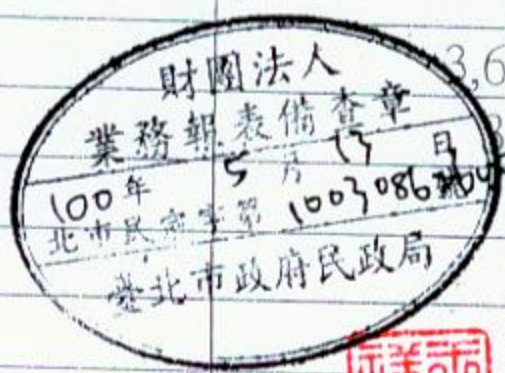 財團法人
業務報表備查章
100年5月13日
北市民宗字第10030863
臺北市政府民政局
3,6